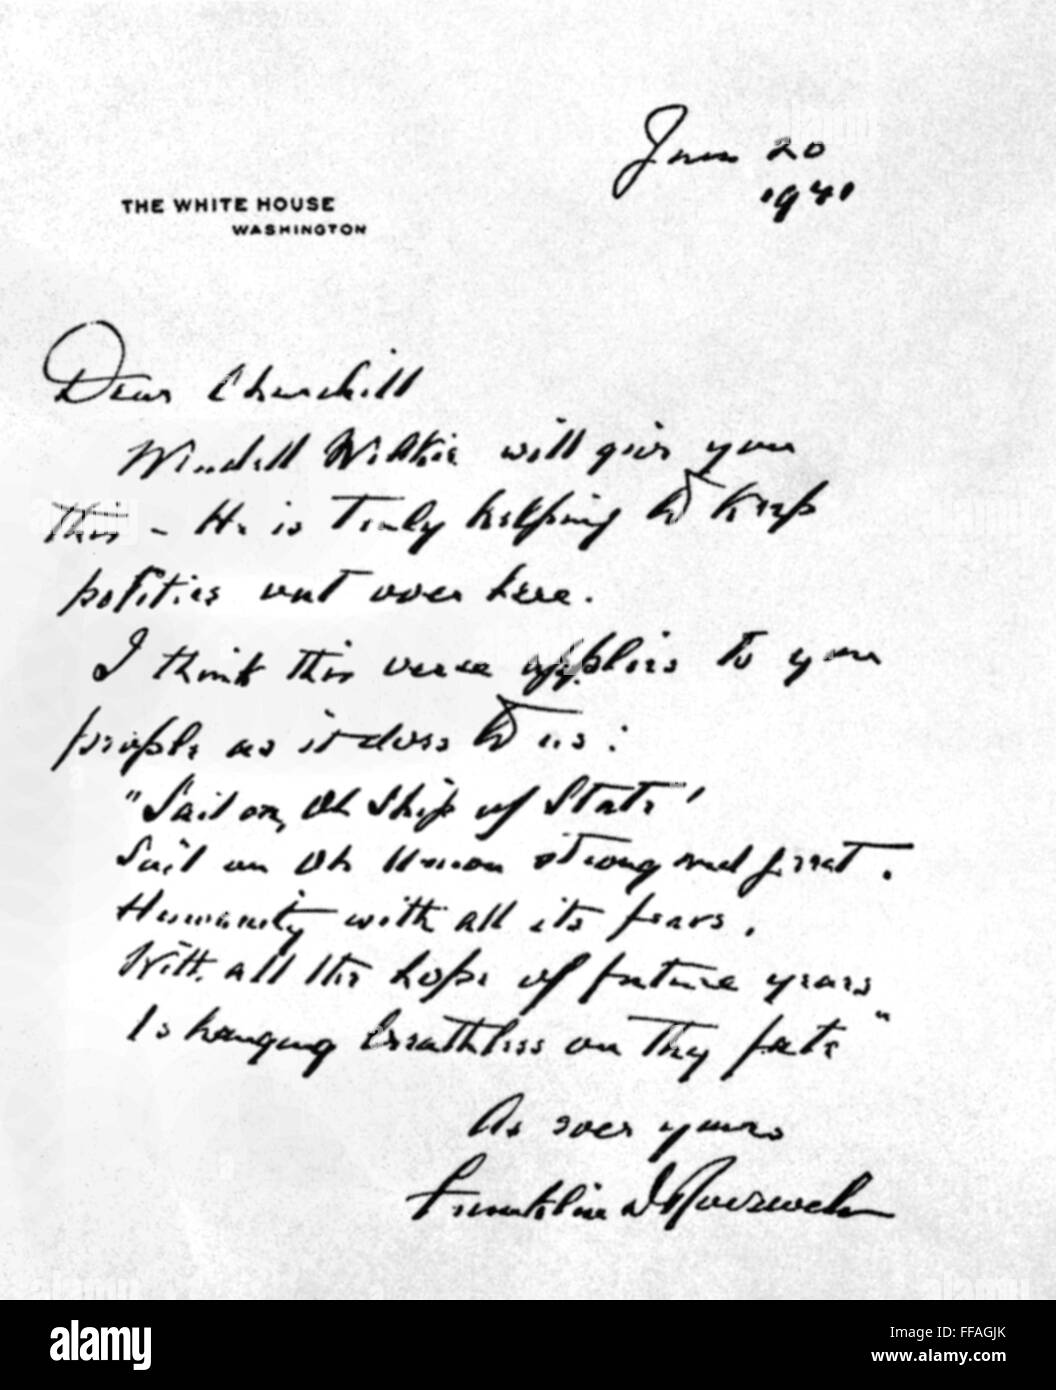 Jan 20
1941
THE WHITE HOUSE
WASHINGTON
Dear Churchill
Wendell Willkie will give you
this – He is truly helping to keep
politics out over here.
I think this verse applies to you
people as it does to us:
"Sail on, Oh Ship of State!
Sail on Oh Union strong and great.
Humanity with all its fears.
With all the hope of future years
Is hanging breathless on thy fate"
As ever yours
Franklin D Roosevelt
alamy
Image ID: FFAGJK
www.alamy.com